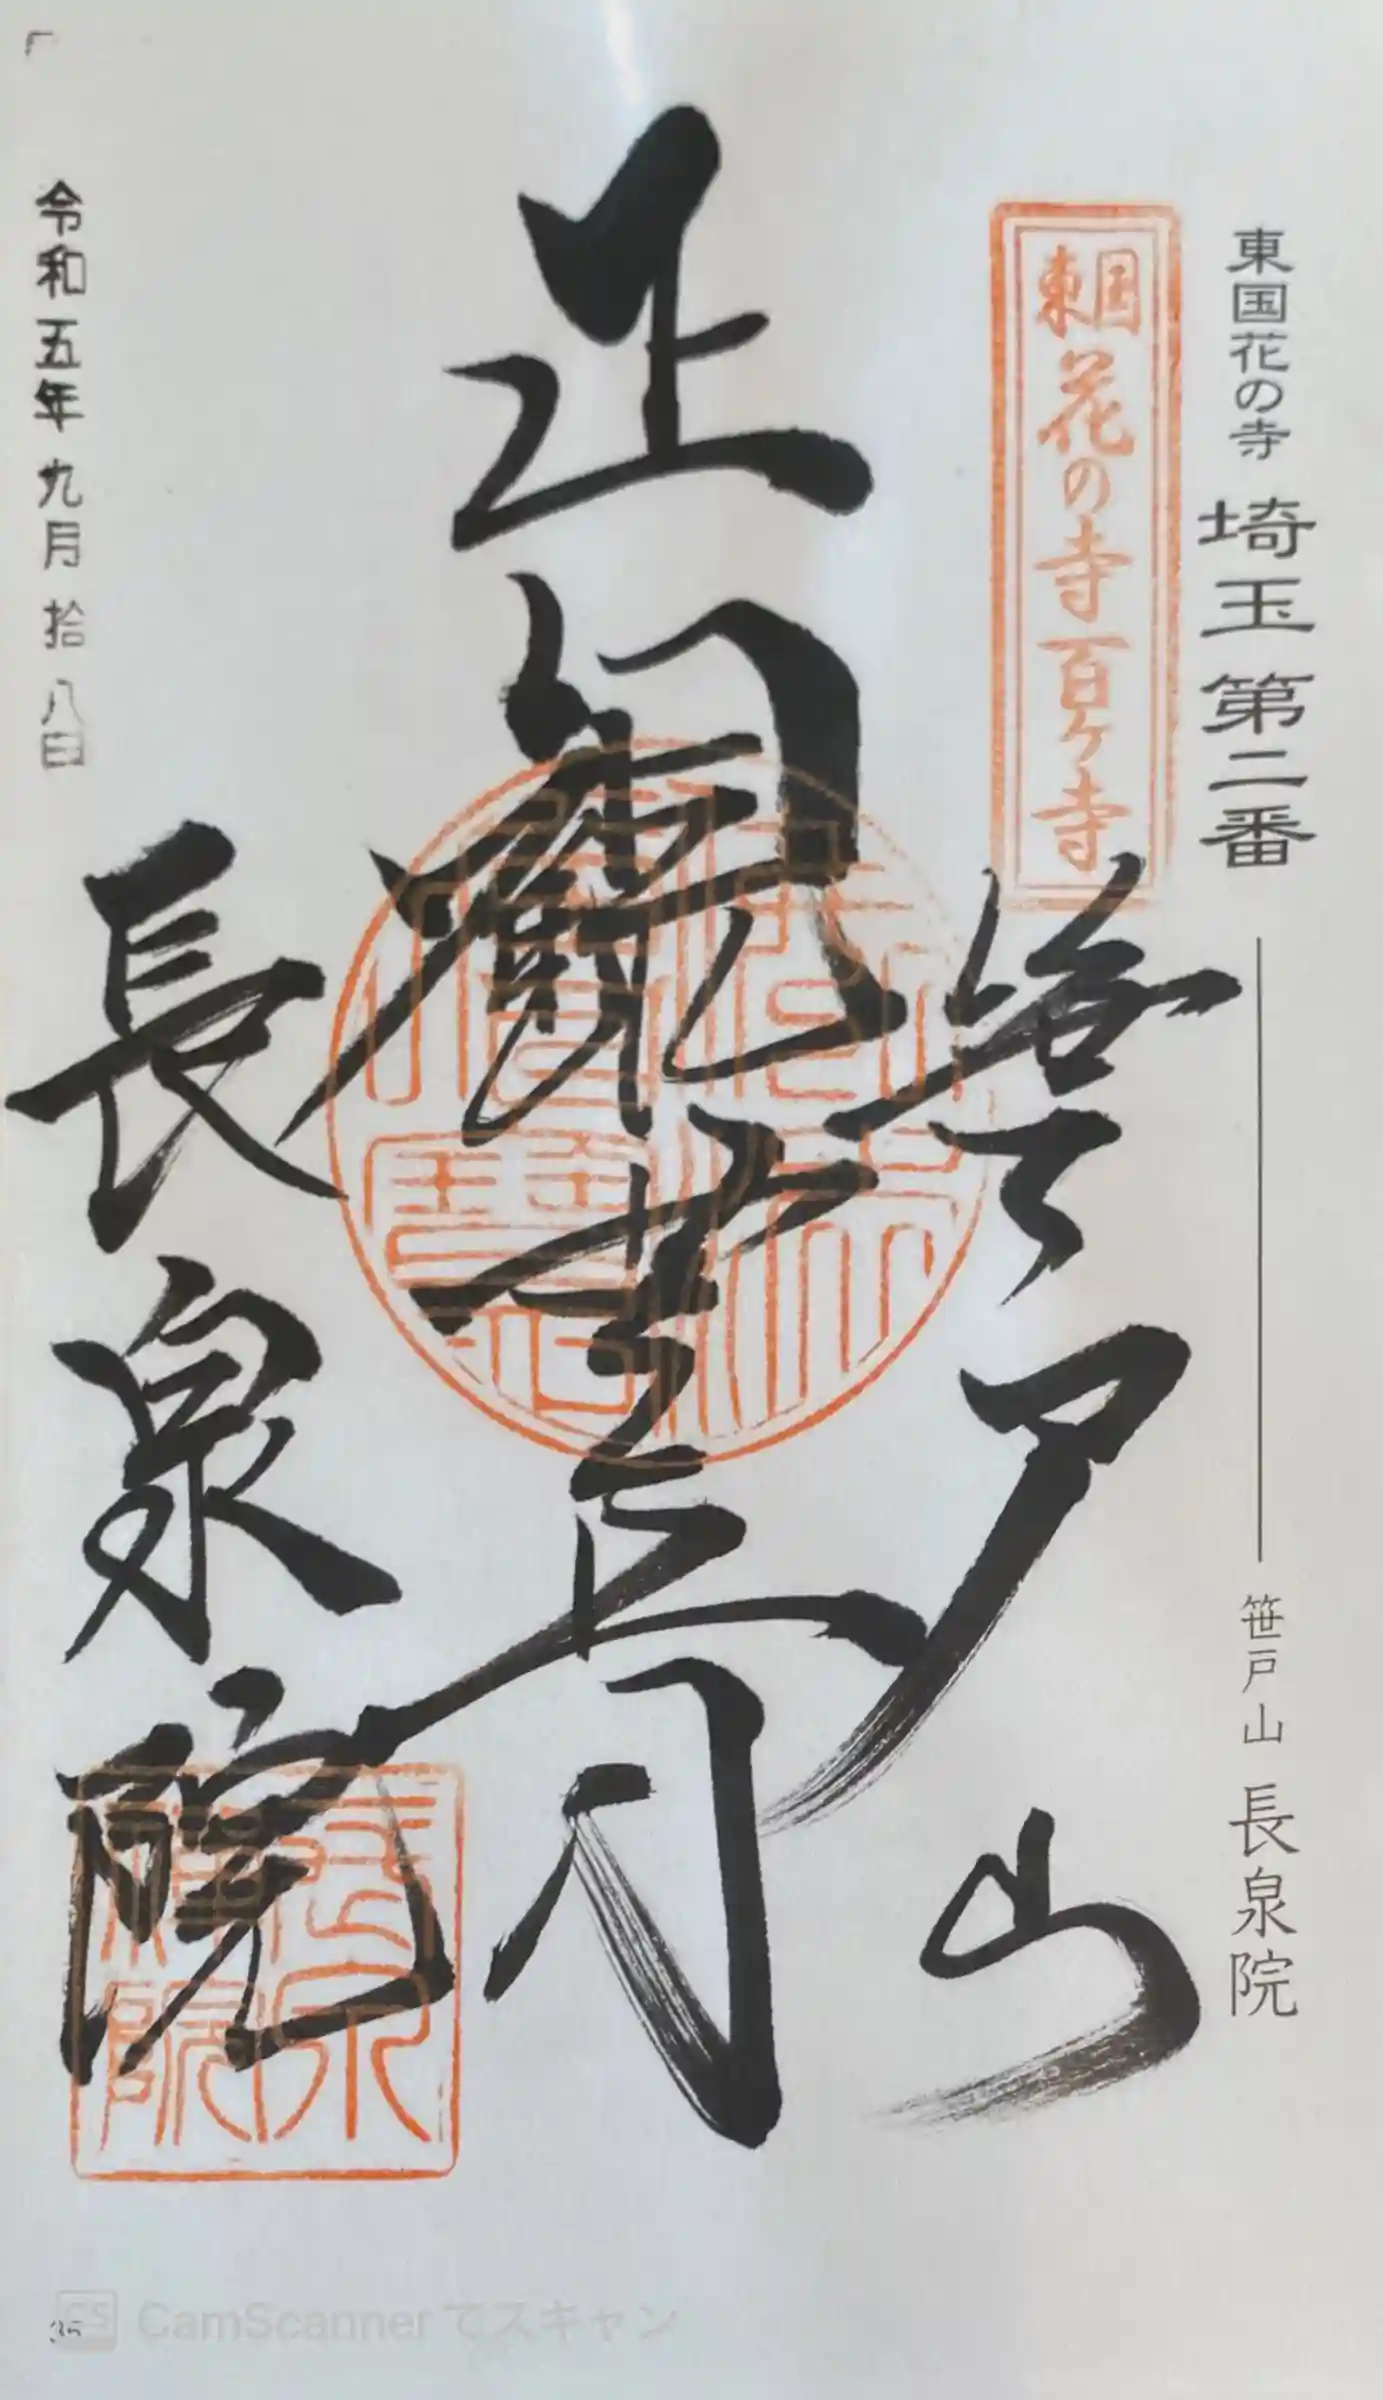 東国花の寺 埼玉第二番 笹戸山 長泉院
東国
花の寺百ヶ寺
笹戸山
正観世音
長泉院
令和五年 九月 拾八日
CS CamScanner でスキャン